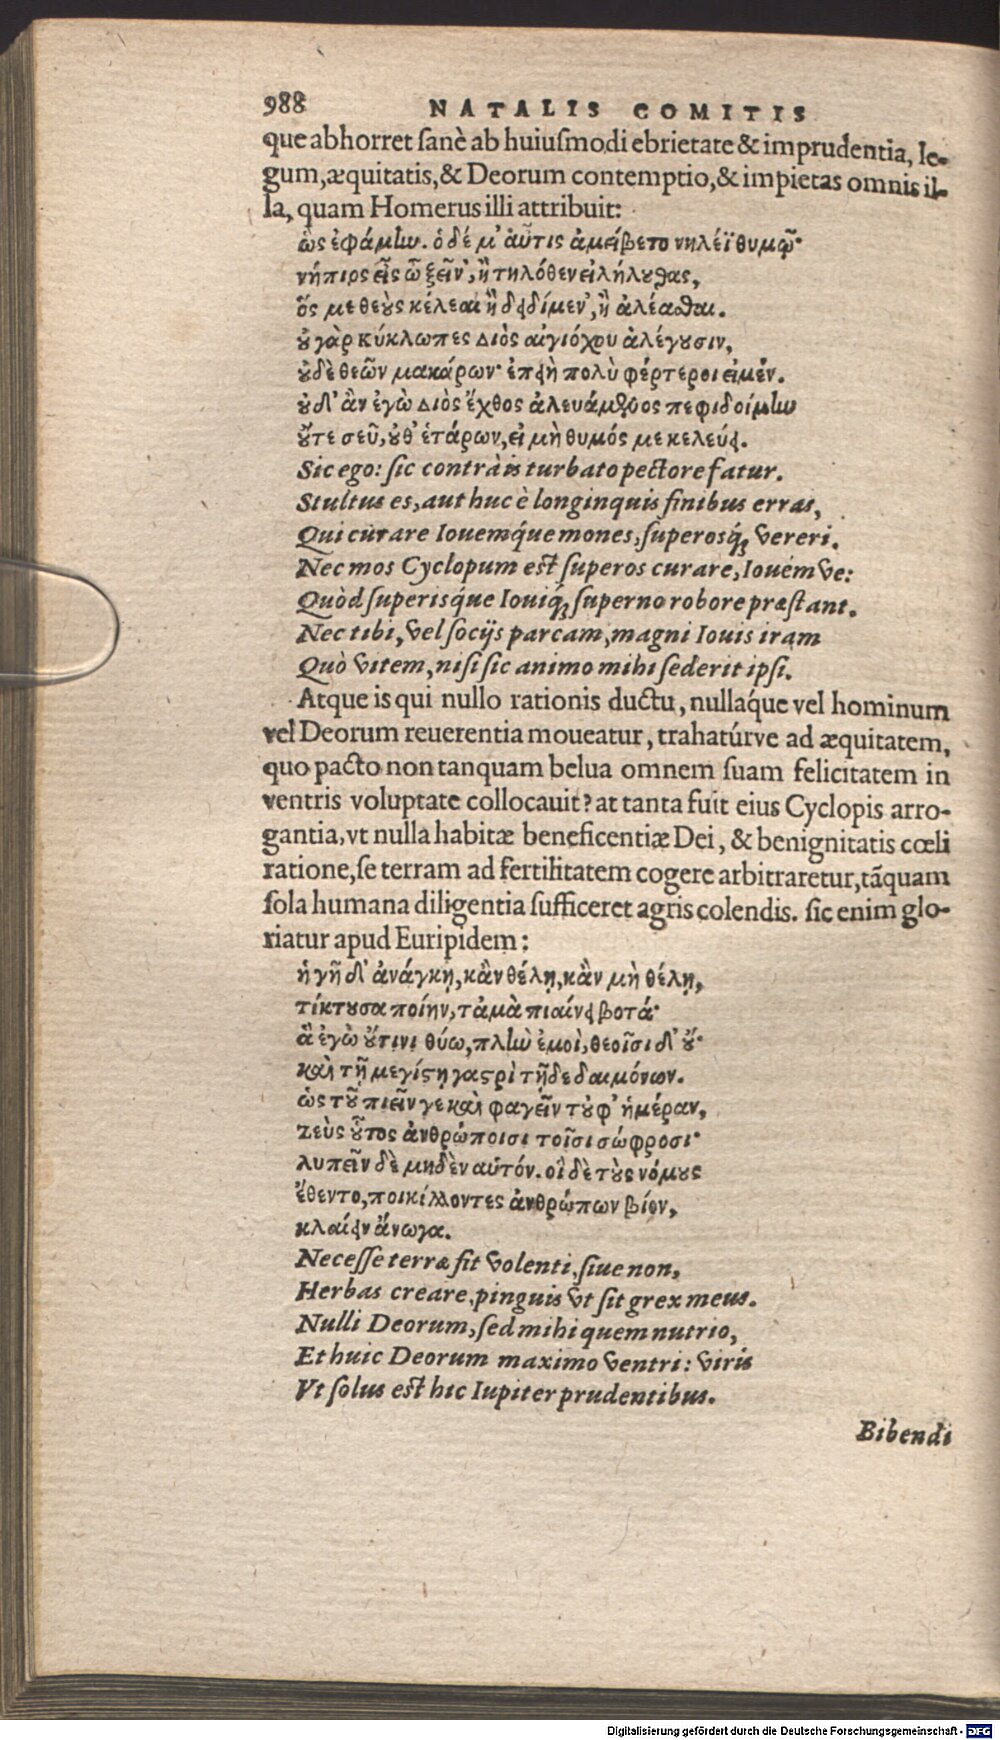 988 NATALIS COMITIS
que abhorret ſanè ab huiuſmodi ebrietate & imprudentia, le-
gum, æquitatis, & Deorum contemptio, & impietas omnis il-
la, quam Homerus illi attribuit:
ὣς ἐφάμην. ὁ δέ μ' αὖτις ἀμείβετο νηλέϊ θυμῷ·
νήπιος εἶς ὦ ξεῖν', ἢ τηλόθεν εἰλήλυθας,
ὅς με θεοὺς κέλεαι ἢ δειδίμεν', ἢ ἀλέασθαι.
οὐ γὰρ κύκλωπες Διὸς αἰγιόχου ἀλέγουσιν,
οὐδὲ θεῶν μακάρων· ἐπειὴ πολὺ φέρτεροι εἰμέν.
οὐδ' ἂν ἐγὼ Διὸς ἔχθος ἀλευάμενος πεφιδοίμην
οὔτε σεῦ, οὐθ' ἑτάρων, εἰ μὴ θυμός με κελεύει.
Sic ego: ſic contrà is turbato pectore fatur.
Stultus es, aut huc è longinquis finibus erras,
Qui curare Iouemq́ue mones, ſuperosq́; vereri.
Nec mos Cyclopum eſt ſuperos curare, Iouem ve:
Quòd ſuperisq́ue Iouiq́; ſuperno robore præſtant.
Nec tibi, vel ſocijs parcam, magni Iouis iram
Quò vitem, niſi ſic animo mihi ſederit ipſi.
Atque is qui nullo rationis ductu, nullaq́ue vel hominum
vel Deorum reuerentia moueatur, trahatúrve ad æquitatem,
quo pacto non tanquam belua omnem ſuam felicitatem in
ventris voluptate collocauit? at tanta fuit eius Cyclopis arro-
gantia, vt nulla habitæ beneficentiæ Dei, & benignitatis cœli
ratione, ſe terram ad fertilitatem cogere arbitraretur, tãquam
ſola humana diligentia ſufficeret agris colendis. ſic enim glo-
riatur apud Euripidem:
ἡ γῆ δ' ἀνάγκῃ, κἂν θέλῃ, κἂν μὴ θέλῃ,
τίκτουσα ποίην, τἀμὰ πιαίνει βοτά·
ἃ ἐγὼ οὔτινι θύω, πλὴν ἐμοὶ, θεοῖσι δ' οὔ·
καὶ τῇ μεγίστῃ γαστρὶ τῇδε δαιμόνων.
ὡς τοῦ πιεῖν γε καὶ φαγεῖν τοὐφ' ἡμέραν,
Ζεὺς οὗτος ἀνθρώποισι τοῖσι σώφροσι·
λυπεῖν δὲ μηδὲν αὑτόν. οἳ δὲ τοὺς νόμους
ἔθεντο, ποικίλλοντες ἀνθρώπων βίον,
κλαίειν ἄνωγα.
Neceſſe terræ ſit volenti, ſiue non,
Herbas creare, pinguis vt ſit grex meus.
Nulli Deorum, ſed mihi quem nutrio,
Et huic Deorum maximo ventri: viris
Vt ſolus eſt hic Iupiter prudentibus.
Bibendi
Digitalisierung gefördert durch die Deutsche Forschungsgemeinschaft - DFG